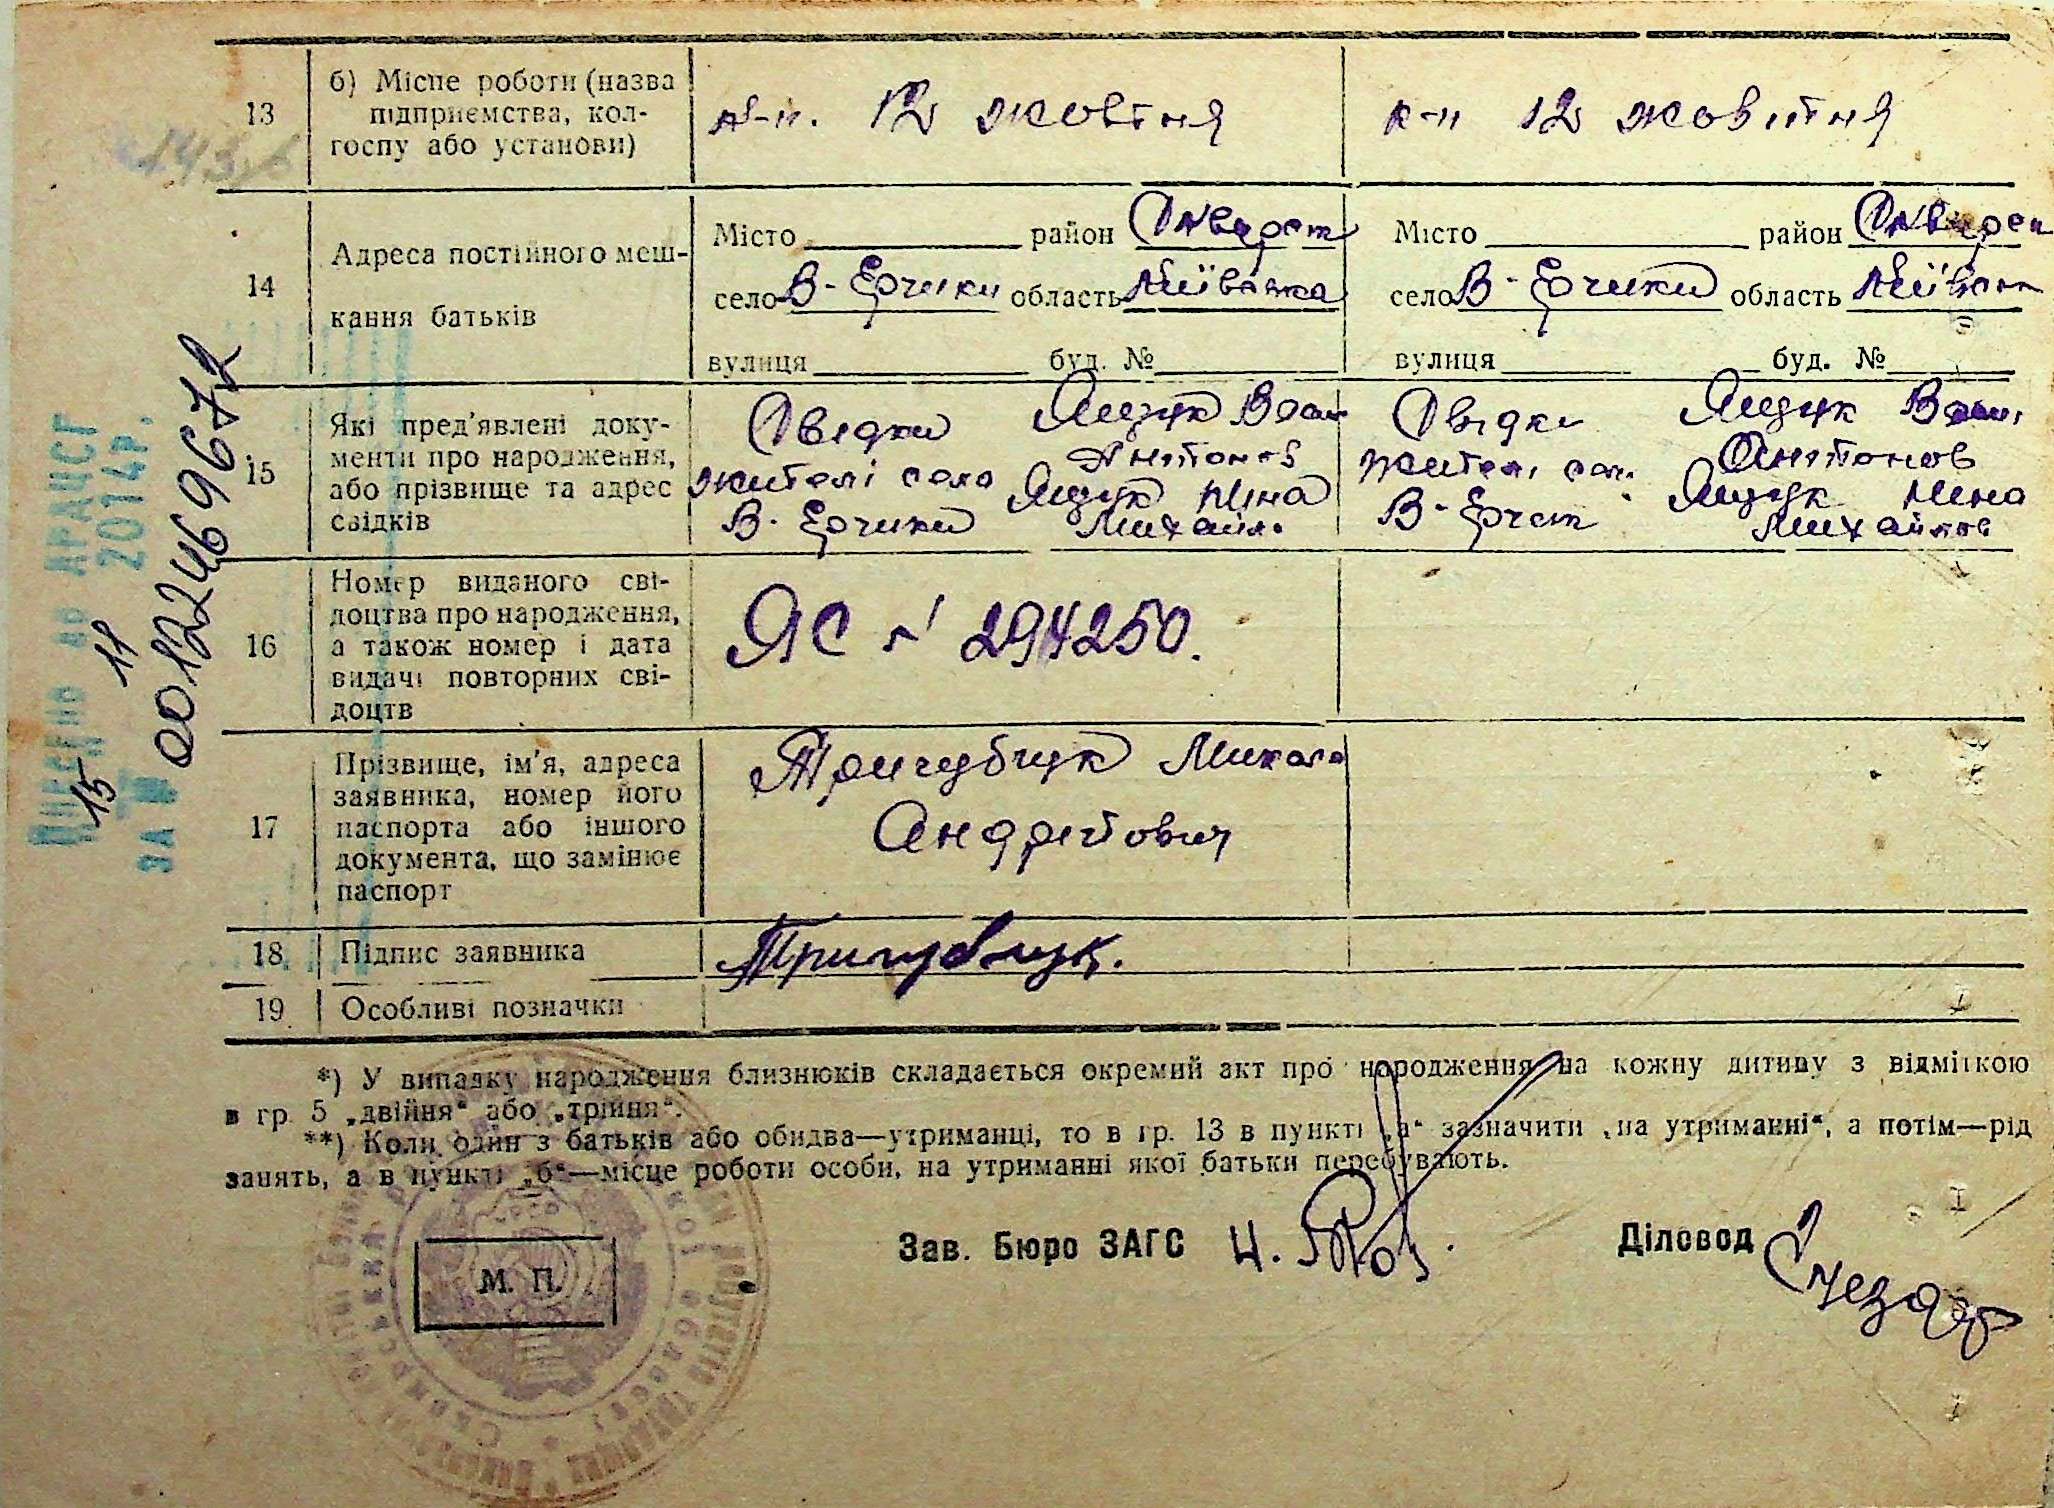 13
б) Місце роботи (назва
підприємства, кол-
госпу або установи)
к-п. 12 жовтня
к-п 12 жовтня
14
Адреса постійного меш-
кання батьків
Місто район Сквирськ
село В-Єрчики область Київська
вулиця буд. №
Місто район Сквирськ
село В-Єрчики область Київськ
вулиця буд. №
15
Які пред'явлені доку-
менти про народження,
або прізвище та адрес
свідків
Свідки Ящук
Антонов
жителі села Ящук Ніна
В-Єрчики Михайл.
Свідки Ящук
Антонов
жителі Ящук Ніна
В-Єрчик Михайлов
16
Номер виданого сві-
доцтва про народження,
а також номер і дата
видачі повторних сві-
доцтв
ЯС № 294250.
17
Прізвище, ім'я, адреса
заявника, номер його
паспорта або іншого
документа, що замінює
паспорт
Тричубчук Микола
Андрійович
18
Підпис заявника
Тричубчук.
19
Особливі позначки
*) У випадку народження близнюків складається окремий акт про народження на кожну дитину з відміткою
в гр. 5 „двійня“ або „трійня“.
**) Коли один з батьків або обидва—утриманці, то в гр. 13 в пункті „а“ зазначити „на утриманні“, а потім—рід
занять, а в пункті „б“—місце роботи особи, на утриманні якої батьки перебувають.
Зав. Бюро ЗАГС
Діловод
М. П.
до ДРАЦСГ
15 11 2014р.
ЗА №
00122469672